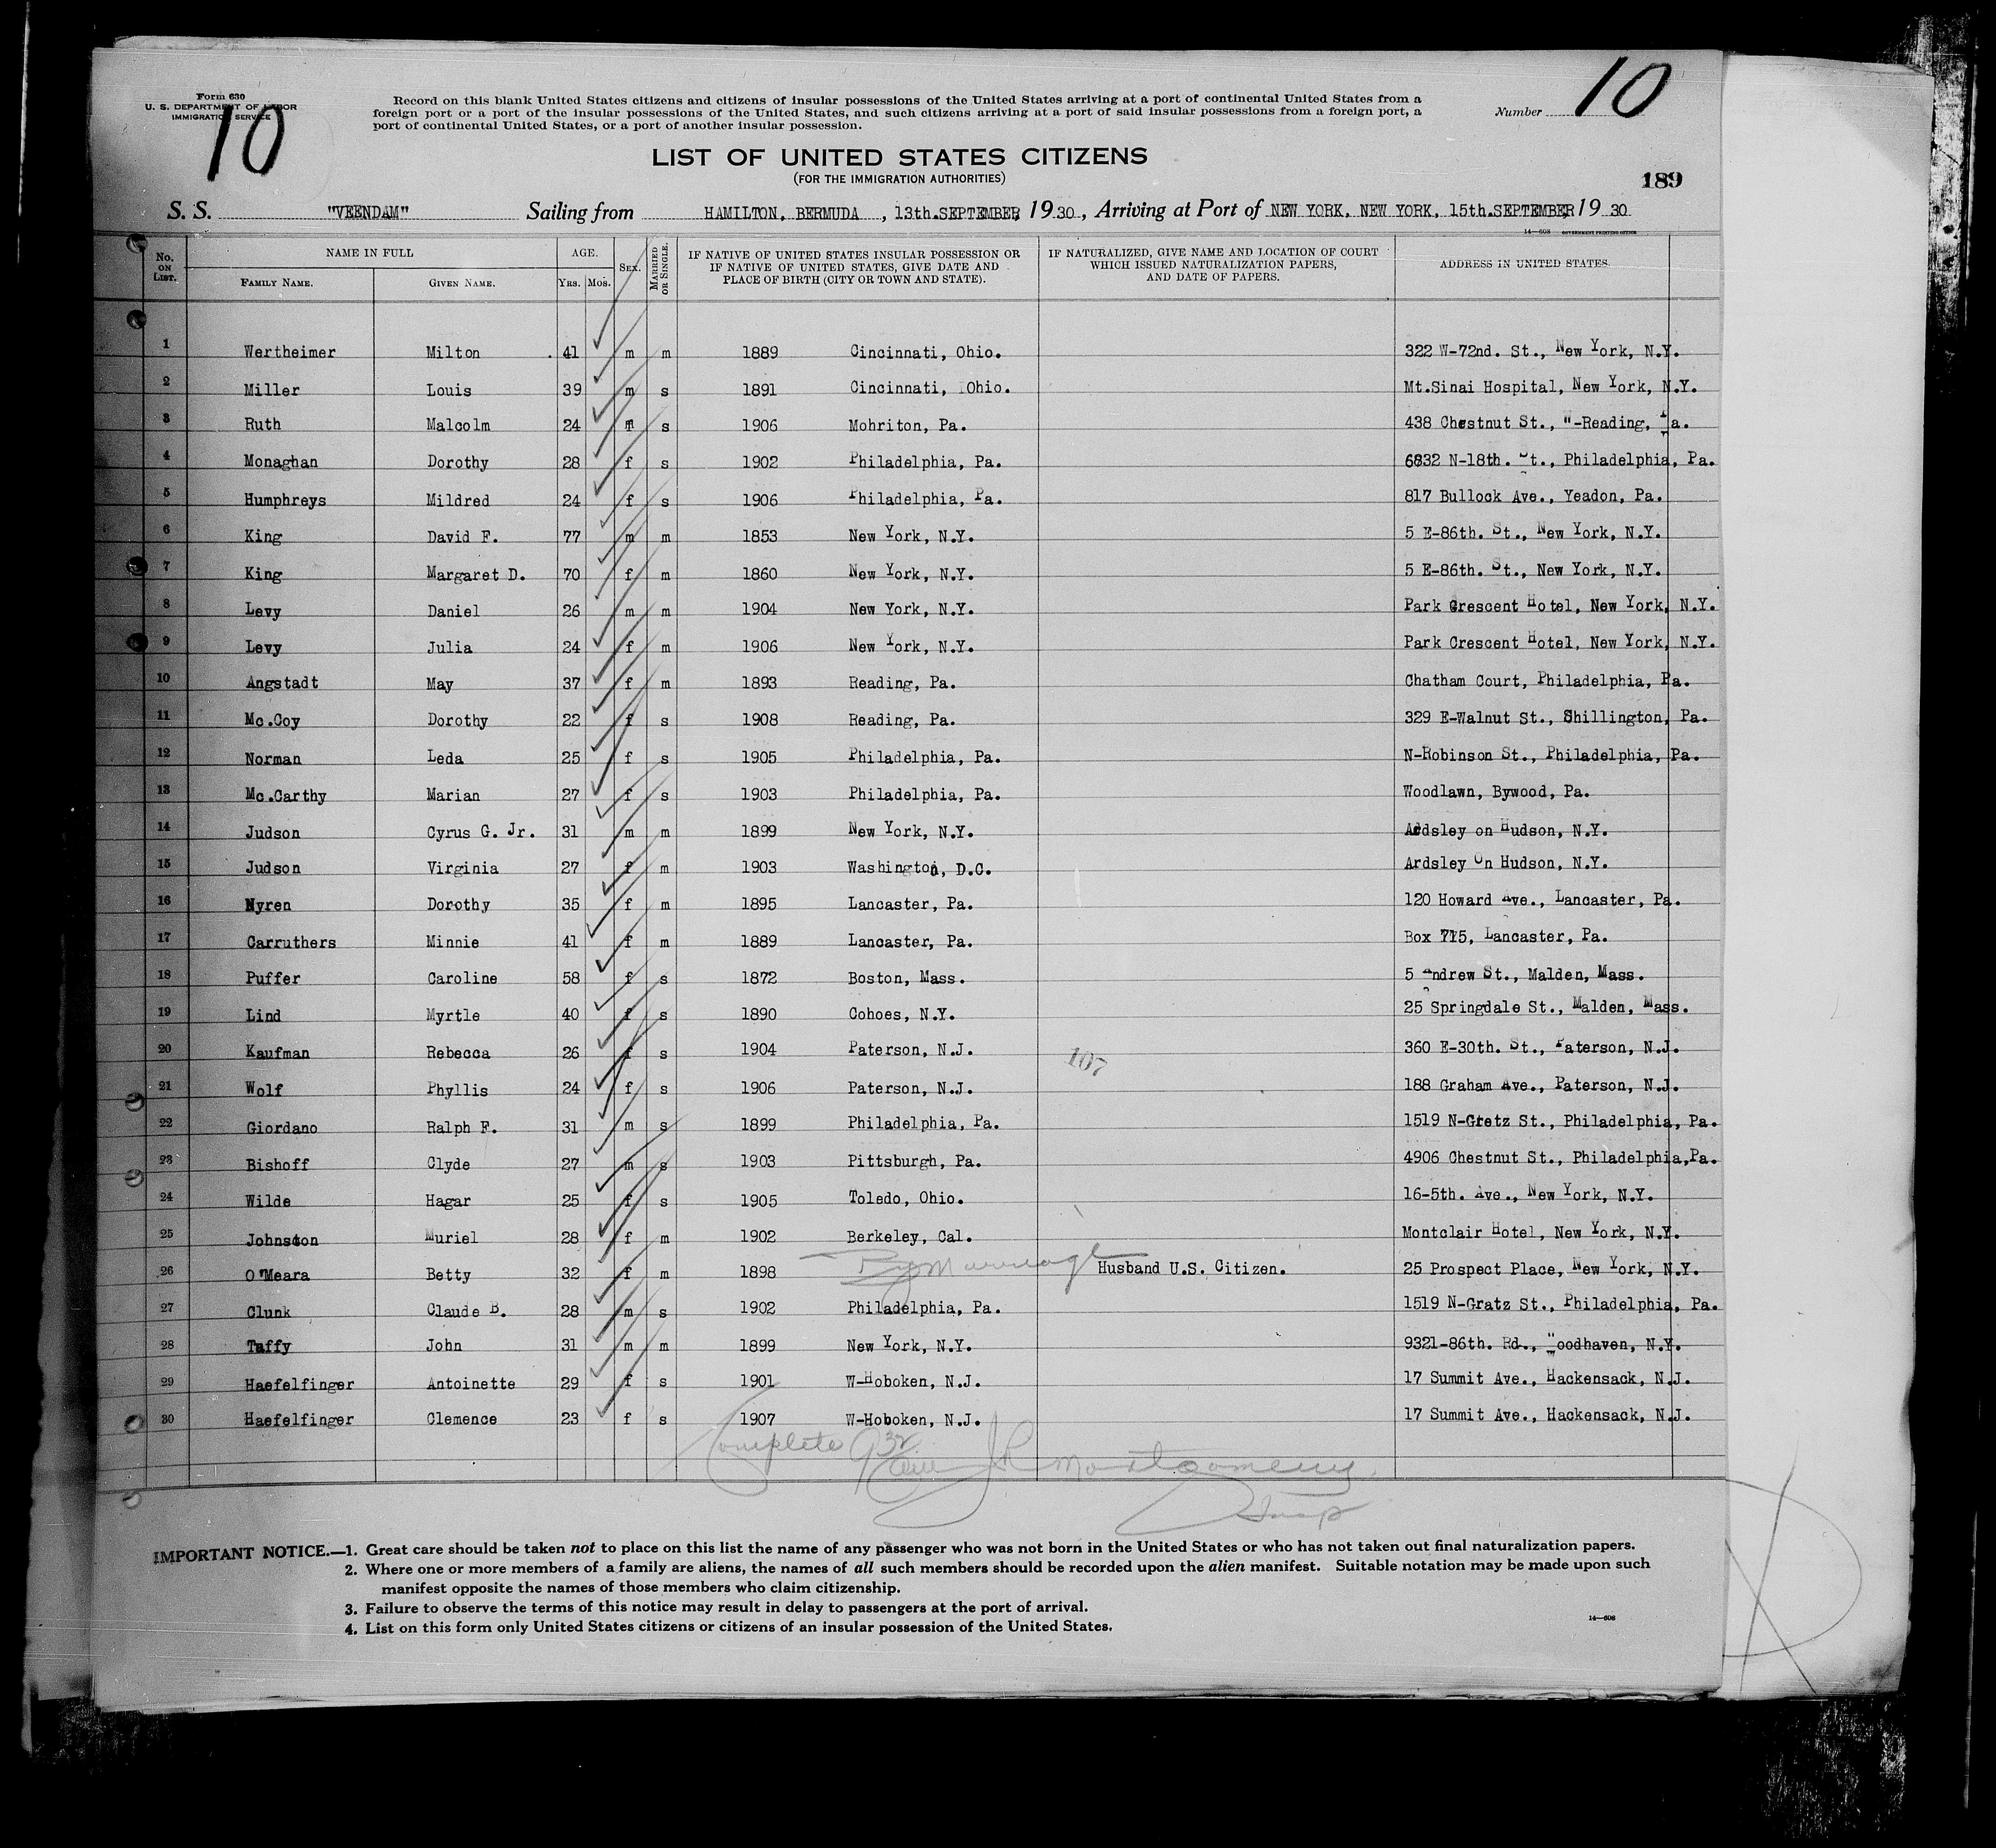 Form 630
U. S. DEPARTMENT OF LABOR
IMMIGRATION SERVICE
10
Record on this blank United States citizens and citizens of insular possessions of the United States arriving at a port of continental United States from a
foreign port or a port of the insular possessions of the United States, and such citizens arriving at a port of said insular possessions from a foreign port, a
port of continental United States, or a port of another insular possession.
Number 10
LIST OF UNITED STATES CITIZENS
(FOR THE IMMIGRATION AUTHORITIES)
189
S. S. "VEENDAM" Sailing from HAMILTON, BERMUDA, 13th.SEPTEMBER, 1930, Arriving at Port of NEW YORK, NEW YORK, 15th.SEPTEMBER, 1930
14—608 GOVERNMENT PRINTING OFFICE
No. ON LIST. NAME IN FULL FAMILY NAME. GIVEN NAME. AGE. YRS. MOS. SEX. MARRIED OR SINGLE. IF NATIVE OF UNITED STATES INSULAR POSSESSION OR IF NATIVE OF UNITED STATES, GIVE DATE AND PLACE OF BIRTH (CITY OR TOWN AND STATE). IF NATURALIZED, GIVE NAME AND LOCATION OF COURT WHICH ISSUED NATURALIZATION PAPERS, AND DATE OF PAPERS. ADDRESS IN UNITED STATES
1 Wertheimer Milton 41 m m 1889 Cincinnati, Ohio. 322 W-72nd. St., New York, N.Y.
2 Miller Louis 39 m s 1891 Cincinnati, Ohio. Mt.Sinai Hospital, New York, N.Y.
3 Ruth Malcolm 24 m s 1906 Mohriton, Pa. 438 Chestnut St., W-Reading, Pa.
4 Monaghan Dorothy 28 f s 1902 Philadelphia, Pa. 6832 N-18th. St., Philadelphia, Pa.
5 Humphreys Mildred 24 f s 1906 Philadelphia, Pa. 817 Bullock Ave., Yeadon, Pa.
6 King David F. 77 m m 1853 New York, N.Y. 5 E-86th. St., New York, N.Y.
7 King Margaret D. 70 f m 1860 New York, N.Y. 5 E-86th. St., New York, N.Y.
8 Levy Daniel 26 m m 1904 New York, N.Y. Park Crescent Hotel, New York, N.Y.
9 Levy Julia 24 f m 1906 New York, N.Y. Park Crescent Hotel, New York, N.Y.
10 Angstadt May 37 f m 1893 Reading, Pa. Chatham Court, Philadelphia, Pa.
11 Mc.Coy Dorothy 22 f s 1908 Reading, Pa. 329 E-Walnut St., Shillington, Pa.
12 Norman Leda 25 f s 1905 Philadelphia, Pa. N-Robinson St., Philadelphia, Pa.
13 Mc.Carthy Marian 27 f s 1903 Philadelphia, Pa. Woodlawn, Bywood, Pa.
14 Judson Cyrus G. Jr. 31 m m 1899 New York, N.Y. Ardsley on Hudson, N.Y.
15 Judson Virginia 27 f m 1903 Washington, D.C. Ardsley On Hudson, N.Y.
16 Nyren Dorothy 35 f m 1895 Lancaster, Pa. 120 Howard Ave., Lancaster, Pa.
17 Carruthers Minnie 41 f m 1889 Lancaster, Pa. Box 715, Lancaster, Pa.
18 Puffer Caroline 58 f s 1872 Boston, Mass. 5 Andrew St., Malden, Mass.
19 Lind Myrtle 40 f s 1890 Cohoes, N.Y. 25 Springdale St., Malden, Mass.
20 Kaufman Rebecca 26 f s 1904 Paterson, N.J. 107 360 E-30th. St., Paterson, N.J.
21 Wolf Phyllis 24 f s 1906 Paterson, N.J. 188 Graham Ave., Paterson, N.J.
22 Giordano Ralph F. 31 m s 1899 Philadelphia, Pa. 1519 N-Gretz St., Philadelphia, Pa.
23 Bishoff Clyde 27 m s 1903 Pittsburgh, Pa. 4906 Chestnut St., Philadelphia,Pa.
24 Wilde Hagar 25 f s 1905 Toledo, Ohio. 16-5th. Ave., New York, N.Y.
25 Johnston Muriel 28 f m 1902 Berkeley, Cal. Montclair Hotel, New York, N.Y.
26 O'Meara Betty 32 f m 1898 By Marriage Husband U.S. Citizen. 25 Prospect Place, New York, N.Y.
27 Clunk Claude B. 28 m s 1902 Philadelphia, Pa. 1519 N-Gratz St., Philadelphia, Pa.
28 Taffy John 31 m m 1899 New York, N.Y. 9321-86th. Rd., Woodhaven, N.Y.
29 Haefelfinger Antoinette 29 f s 1901 W-Hoboken, N.J. 17 Summit Ave., Hackensack, N.J.
30 Haefelfinger Clemence 23 f s 1907 W-Hoboken, N.J. 17 Summit Ave., Hackensack, N.J.
Complete
Montgomery
Insp
IMPORTANT NOTICE.—1. Great care should be taken not to place on this list the name of any passenger who was not born in the United States or who has not taken out final naturalization papers.
2. Where one or more members of a family are aliens, the names of all such members should be recorded upon the alien manifest. Suitable notation may be made upon such
manifest opposite the names of those members who claim citizenship.
3. Failure to observe the terms of this notice may result in delay to passengers at the port of arrival.
4. List on this form only United States citizens or citizens of an insular possession of the United States.
14—608